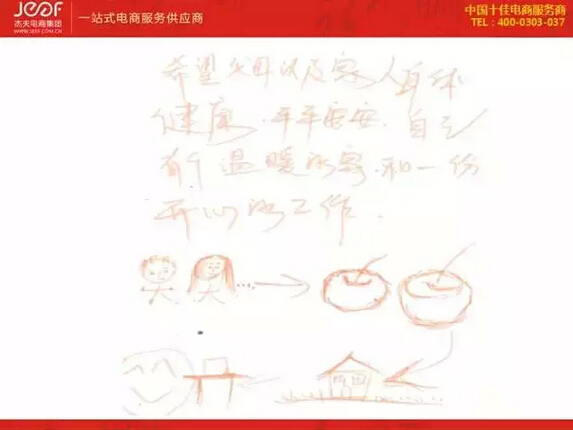 JEFF
杰夫电商集团
WWW.JEFF.COM.CN
一站式电商服务供应商
中国十佳电商服务商
TEL：400-0303-037
希望父母以及家人身体
健康．平平安安．自己
有个温暖的家．和一份
开心的工作．